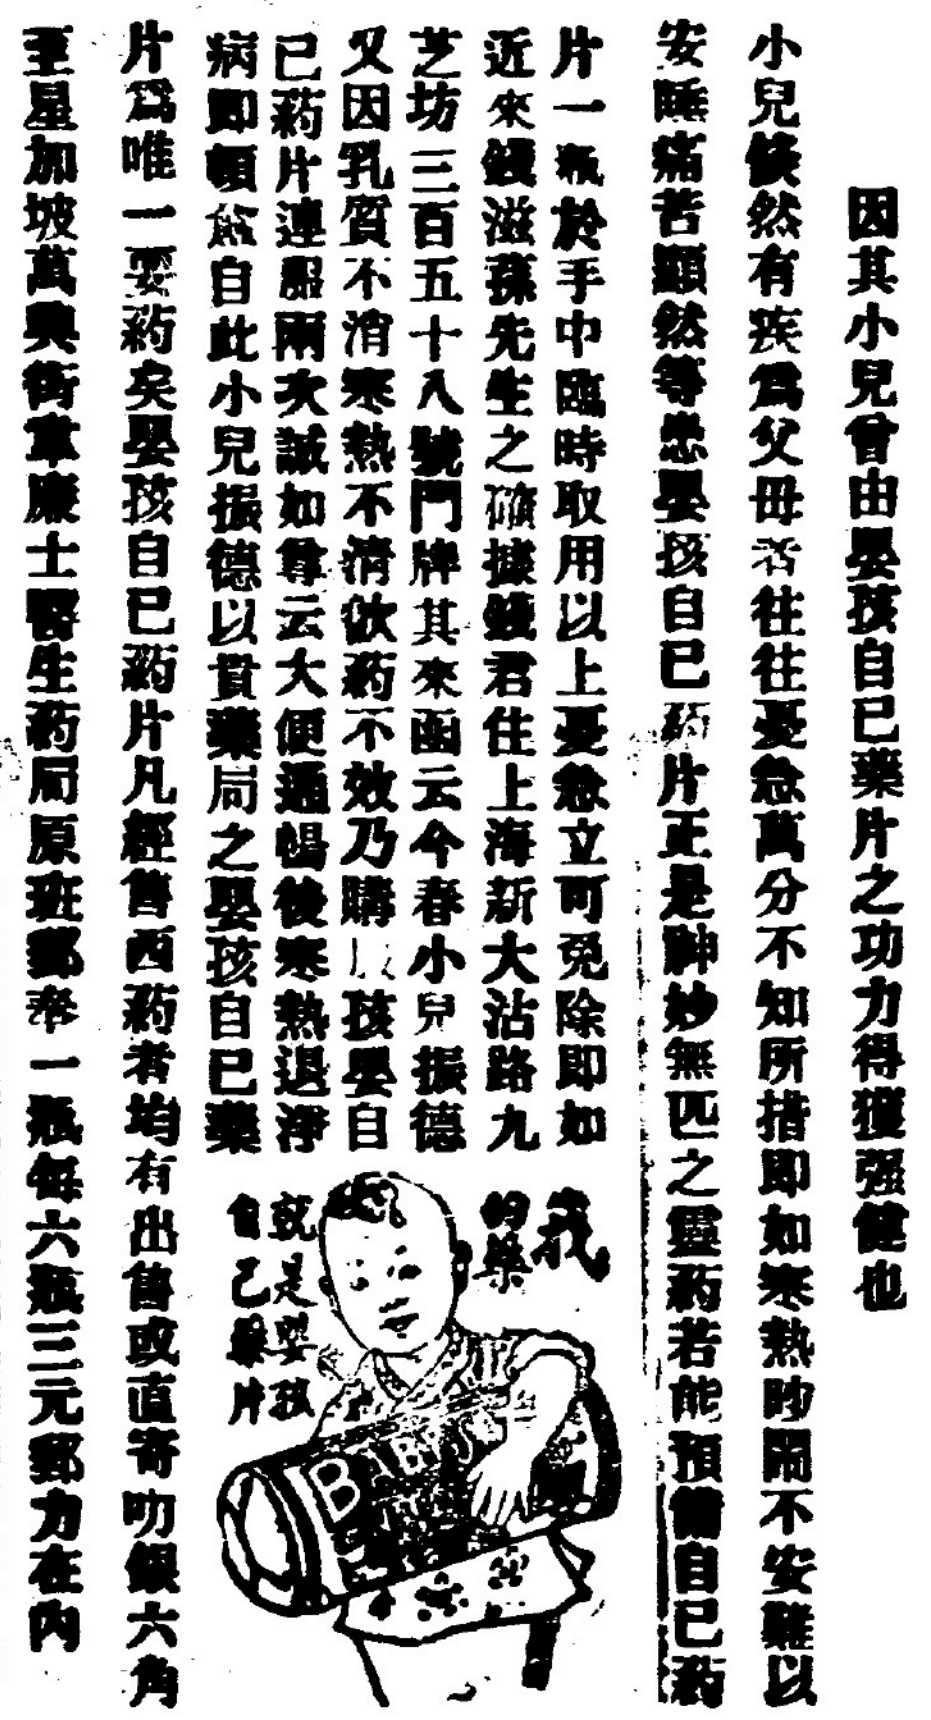 因其小兒曾由嬰孩自己藥片之功力得獲强健也
小兒倏然有疾爲父毋者往往憂急萬分不知所措即如寒熱吵鬧不安難以
安睡痛苦顯然等患嬰孩自已药片正是神妙無匹之靈药若能預備自已药
片一瓶於手中臨時取用以上憂急立可免除即如
近來錢滋蓀先生之確據錢君住上海新大沽路九
芝坊三百五十八號門牌其來函云今春小兒振德
又因乳質不消寒熱不清飲药不效乃購孩嬰自
已药片連服兩次誠如尊云大便通暢後寒熱退淨
病即頓愈自此小兒振德以貴藥局之嬰孩自已藥
片爲唯一要药矣嬰孩自已药片凡經售西药者均有出售或直寄叻銀六角
至星加坡萬興街韋廉士醫生药局原班郵奉一瓶每六瓶三元郵力在內
我
的藥
就是嬰孩
自己藥片
BABY'S